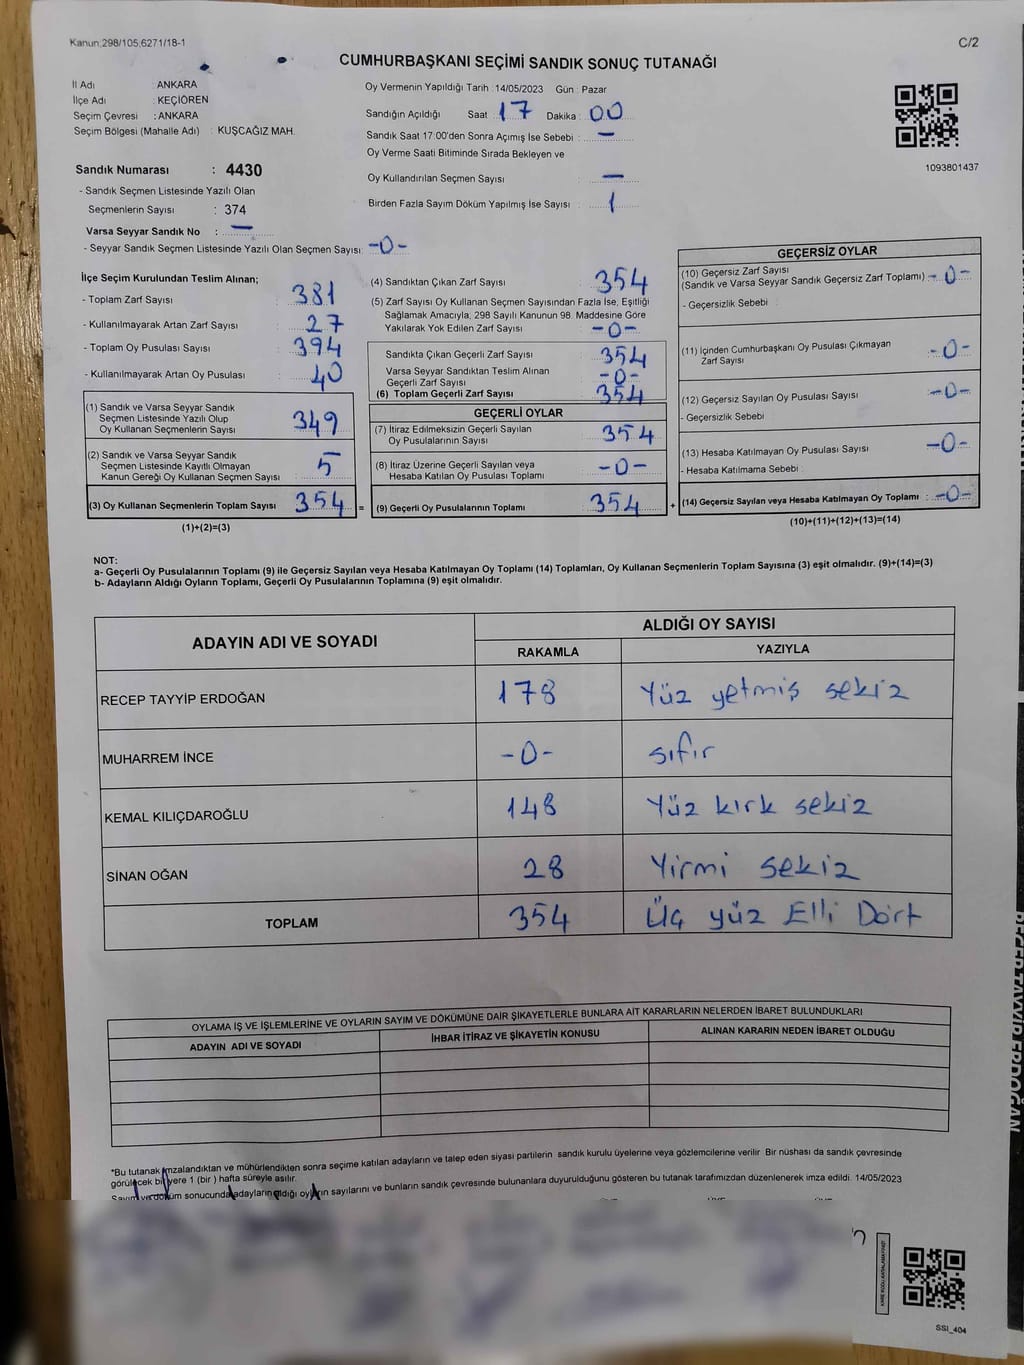 Kanun,298/105,6271/18-1
C/2
CUMHURBAŞKANI SEÇİMİ SANDIK SONUÇ TUTANAĞI
İl Adı : ANKARA
İlçe Adı : KEÇİÖREN
Seçim Çevresi : ANKARA
Seçim Bölgesi (Mahalle Adı) : KUŞCAĞIZ MAH.
Oy Vermenin Yapıldığı Tarih : 14/05/2023 Gün : Pazar
Sandığın Açıldığı Saat : 17 Dakika : 00
Sandık Saat 17:00'den Sonra Açımış İse Sebebi : —
Oy Verme Saati Bitiminde Sırada Bekleyen ve
Oy Kullandırılan Seçmen Sayısı : —
Birden Fazla Sayım Döküm Yapılmış İse Sayısı : 1
1093801437
Sandık Numarası : 4430
- Sandık Seçmen Listesinde Yazılı Olan
Seçmenlerin Sayısı : 374
Varsa Seyyar Sandık No : —
- Seyyar Sandık Seçmen Listesinde Yazılı Olan Seçmen Sayısı: -0-
İlçe Seçim Kurulundan Teslim Alınan;
- Toplam Zarf Sayısı : 381
- Kullanılmayarak Artan Zarf Sayısı : 27
- Toplam Oy Pusulası Sayısı : 394
- Kullanılmayarak Artan Oy Pusulası : 40
(1) Sandık ve Varsa Seyyar Sandık
Seçmen Listesinde Yazılı Olup
Oy Kullanan Seçmenlerin Sayısı : 349
(2) Sandık ve Varsa Seyyar Sandık
Seçmen Listesinde Kayıtlı Olmayan
Kanun Gereği Oy Kullanan Seçmen Sayısı : 5
(3) Oy Kullanan Seçmenlerin Toplam Sayısı : 354 =
(1)+(2)=(3)
(4) Sandıktan Çıkan Zarf Sayısı : 354
(5) Zarf Sayısı Oy Kullanan Seçmen Sayısından Fazla İse, Eşitliği
Sağlamak Amacıyla, 298 Sayılı Kanunun 98. Maddesine Göre
Yakılarak Yok Edilen Zarf Sayısı : -0-
Sandıkta Çıkan Geçerli Zarf Sayısı : 354
Varsa Seyyar Sandıktan Teslim Alınan
Geçerli Zarf Sayısı : -0-
(6) Toplam Geçerli Zarf Sayısı : 354
GEÇERLİ OYLAR
(7) İtiraz Edilmeksizin Geçerli Sayılan
Oy Pusulalarının Sayısı : 354
(8) İtiraz Üzerine Geçerli Sayılan veya
Hesaba Katılan Oy Pusulası Toplamı : -0-
(9) Geçerli Oy Pusulalarının Toplamı : 354 +
GEÇERSİZ OYLAR
(10) Geçersiz Zarf Sayısı
(Sandık ve Varsa Seyyar Sandık Geçersiz Zarf Toplamı) : -0-
- Geçersizlik Sebebi :
(11) İçinden Cumhurbaşkanı Oy Pusulası Çıkmayan
Zarf Sayısı : -0-
(12) Geçersiz Sayılan Oy Pusulası Sayısı : -0-
- Geçersizlik Sebebi :
(13) Hesaba Katılmayan Oy Pusulası Sayısı : -0-
- Hesaba Katılmama Sebebi :
(14) Geçersiz Sayılan veya Hesaba Katılmayan Oy Toplamı : -0-
(10)+(11)+(12)+(13)=(14)
NOT:
a- Geçerli Oy Pusulalarının Toplamı (9) ile Geçersiz Sayılan veya Hesaba Katılmayan Oy Toplamı (14) Toplamları, Oy Kullanan Seçmenlerin Toplam Sayısına (3) eşit olmalıdır. (9)+(14)=(3)
b- Adayların Aldığı Oyların Toplamı, Geçerli Oy Pusulalarının Toplamına (9) eşit olmalıdır.
ADAYIN ADI VE SOYADI ALDIĞI OY SAYISI
RAKAMLA YAZIYLA
RECEP TAYYİP ERDOĞAN 178 Yüz yetmiş sekiz
MUHARREM İNCE -0- sıfır
KEMAL KILIÇDAROĞLU 148 Yüz kırk sekiz
SİNAN OĞAN 28 Yirmi sekiz
TOPLAM 354 Üç yüz Elli Dört
OYLAMA İŞ VE İŞLEMLERİNE VE OYLARIN SAYIM VE DÖKÜMÜNE DAİR ŞİKAYETLERLE BUNLARA AİT KARARLARIN NELERDEN İBARET BULUNDUKLARI
ADAYIN ADI VE SOYADI İHBAR İTİRAZ VE ŞİKAYETİN KONUSU ALINAN KARARIN NEDEN İBARET OLDUĞU
*Bu tutanak imzalandıktan ve mühürlendikten sonra seçime katılan adayların ve talep eden siyasi partilerin sandık kurulu üyelerine veya gözlemcilerine verilir. Bir nüshası da sandık çevresinde
görülecek bir yere 1 (bir ) hafta süreyle asılır.
Sayım ve döküm sonucunda adayların aldığı oyların sayılarını ve bunların sandık çevresinde bulunanlara duyurulduğunu gösteren bu tutanak tarafımızdan düzenlenerek imza edildi. 14/05/2023
SSI_404
RECEP TAYYİP ERDOĞAN